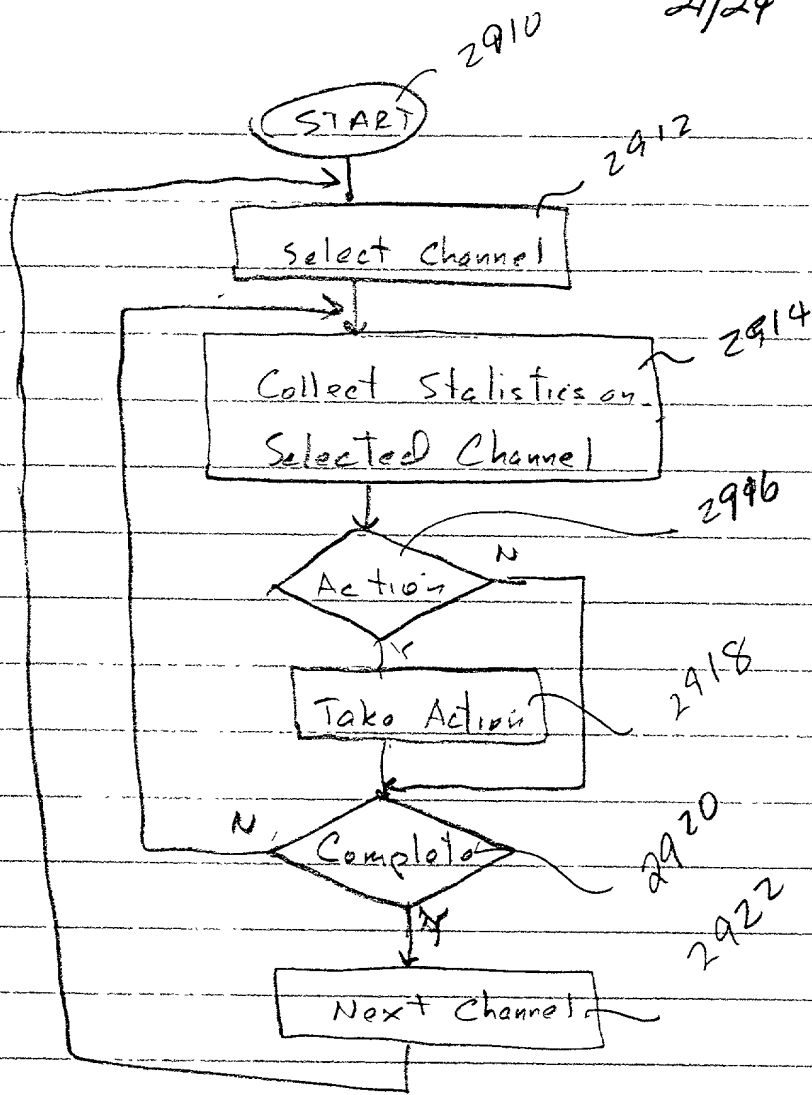 21/24
2910
START
2912
Select Channel
2914
Collect Statistics on
Selected Channel
2916
Action
N
Y
2918
Take Action
N
Complete
2920
Y
2922
Next Channel